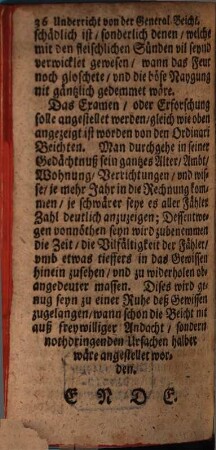 36 Underricht von der General Beicht.
schädlich ist / sonderlich denen / welche
mit den fleischlichen Sünden vil seynd
verwicklet gewesen / wann das Feur
noch glosthete / und die böse Naygung
nit gäntzlich gedemmet wäre.
Das Examen / oder Erforschung
solle angestellet werden / gleich wie oben
angezeigt ist worden von den Ordinari
Beichten. Man durchgehe in seiner
Gedächtnuß sein gantzes Alter / Ambt /
Wohnung / Verrichtungen / und wis-
se / je mehr Jahr in die Rechnung kom-
men / je schwärer seye es aller Fähler
Zahl deutlich anzuzeigen; Dessentwe-
gen vonnöthen seyn wird zubenemmen
die Zeit / die Vilfältigkeit der Fähler /
umb etwas tieffers in das Gewissen
hinein zusehen / und zu widerhalen ob-
angedeuter massen. Dises wird ge-
nug seyn zu einer Ruhe deß Gewissen
zugelangen / wann schon die Beicht nit
auß freywilliger Andacht / sondern
nothdringenden Ursachen halber
wäre angestellet wor-
den.
E N D E.